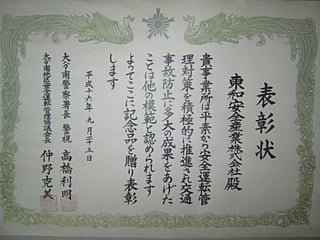 表彰状
東和安全産業株式会社殿
貴事業所は平素から安全運転管
理対策を積極的に推進され交通
事故防止に多大の成果をあげた
ことは他の模範と認められます
よってここに記念品を贈り表彰
します
平成十六年九月二十五日
大分南警察署長 警視 高橋利明
大分南地区安全運転管理協議会長 仲野克美